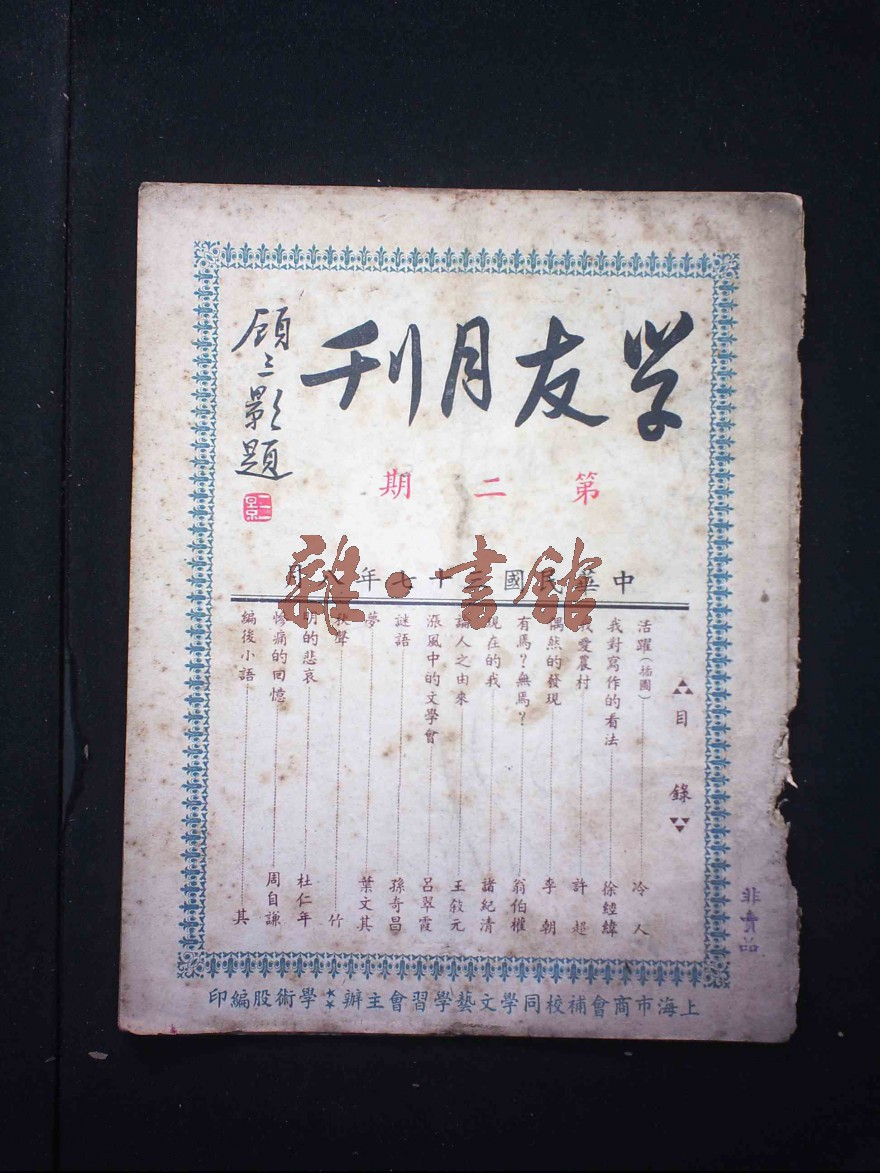 学友月刊
顧三影題
第二期
中華民國三十七年八月
雜·書館
目錄
活躍(插圖)……冷人
我對寫作的看法……徐經緯
我愛農村……許超
偶然的發現……李朝
有焉?無焉?……翁伯權
現在的我……諸紀清
人之由來……王敍元
漲風中的文學會……呂翠霞
謎語……孫奇昌
夢……葉文其
秋聲……竹
的悲哀……杜仁年
慘痛的回憶……周自謙
編後小語……其
上海市商會補校同學文藝學習會主辦 學術股編印
非賣品